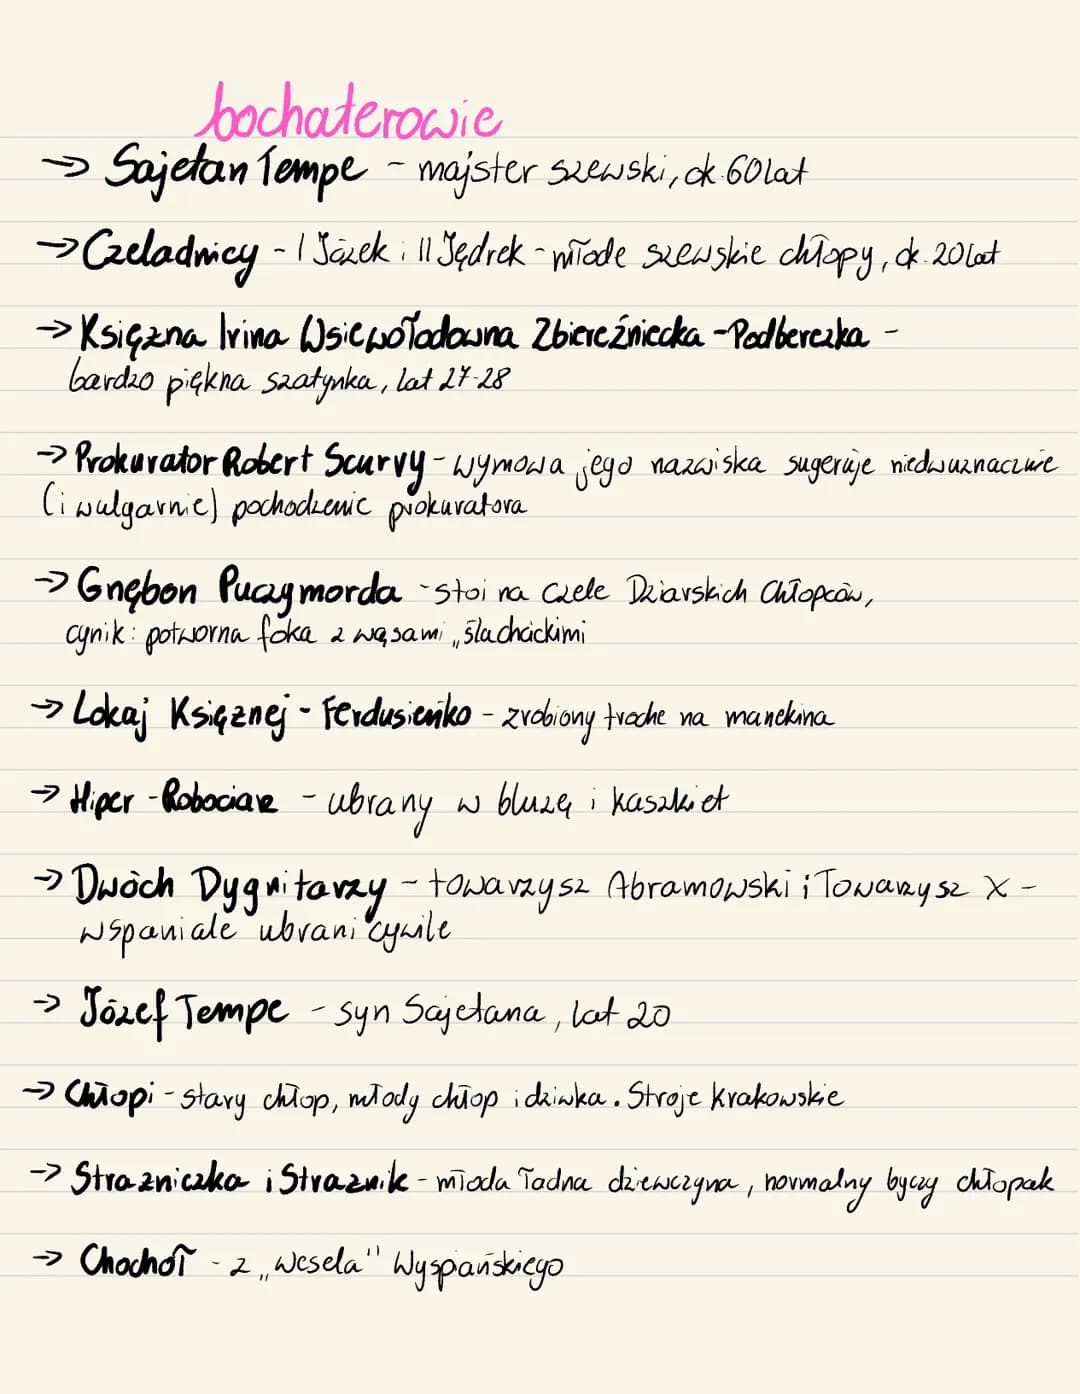 bochaterowie
→ Sajetan Tempe - majster szewski, ok. 60 lat
→ Czeladnicy - I Józek i II Jędrek - młode szewskie chłopy, ok. 20 lat
→ Księżna Irina Wsiewołodowna Zbereźnicka - Podberezka -
bardzo piękna szatynka, lat 27-28
→ Prokurator Robert Scurvy - wymowa jego nazwiska sugeruje niedwuznacznie
(i wulgarnie) pochodzenie prokuratora
→ Gnębon Puczymorda - stoi na czele Dziarskich Chłopców,
cynik: potworna foka z wąsami „ślachcickimi
→ Lokaj Księżnej - Ferdusieńko - zrobiony troche na manekina
→ Hiper - Robociarz - ubrany w bluzę i kaszkiet
→ Dwóch Dygnitarzy - towarzysz Abramowski i Towarzysz X -
wspaniale ubrani cywile
→ Józef Tempe - syn Sajetana, lat 20
→ Chłopi - stary chłop, młody chłop i dziwka. Stroje krakowskie
→ Strażniczka i Strażnik - młoda ładna dziewczyna, normalny byczy chłopak
→ Chochoł - z „Wesela" Wyspiańskiego